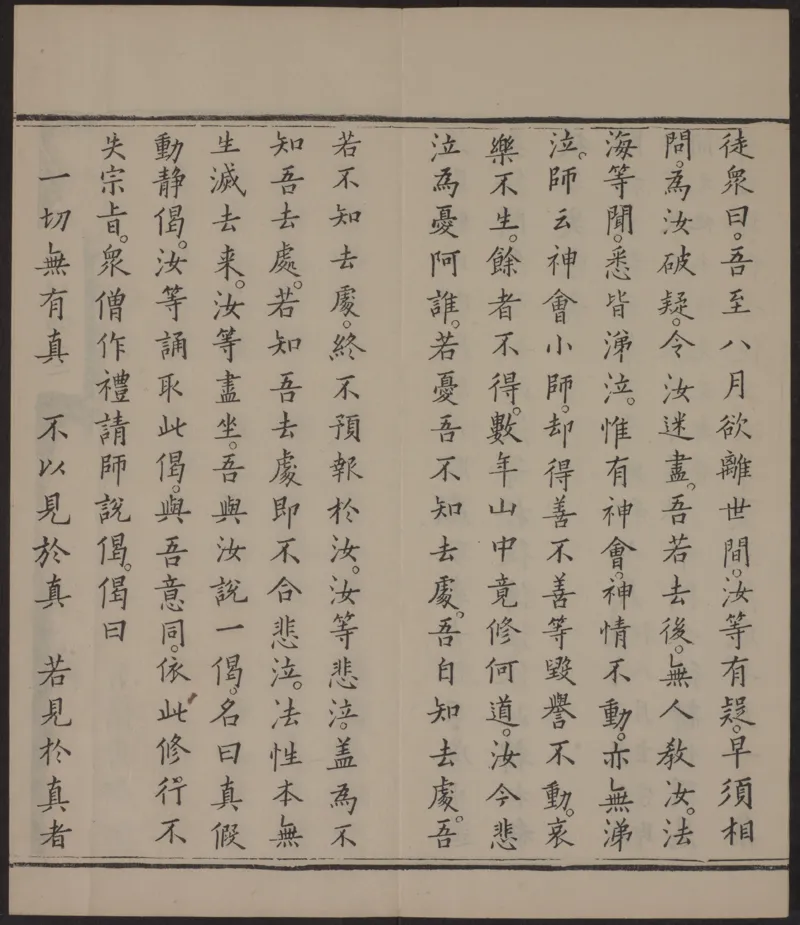 徒衆曰。吾至八月欲離世間。汝等有疑。早須相
問。為汝破疑。令汝迷盡。吾若去後。無人教汝。法
海等聞。悉皆涕泣。惟有神會。神情不動。亦無涕
泣。師云神會小師。却得善不善等毀譽不動。哀
樂不生。餘者不得。數年山中竟修何道。汝今悲
泣為憂阿誰。若憂吾不知去處。吾自知去處。吾
若不知去處。終不預報於汝。汝等悲泣。盖為不
知吾去處。若知吾去處即不合悲泣。法性本無
生滅去来。汝等盡坐。吾與汝說一偈。名曰真假
動静偈。汝等誦取此偈。與吾意同。依此修行。不
失宗旨。衆僧作禮請師說偈。偈曰
一切無有真 不以見於真 若見於真者